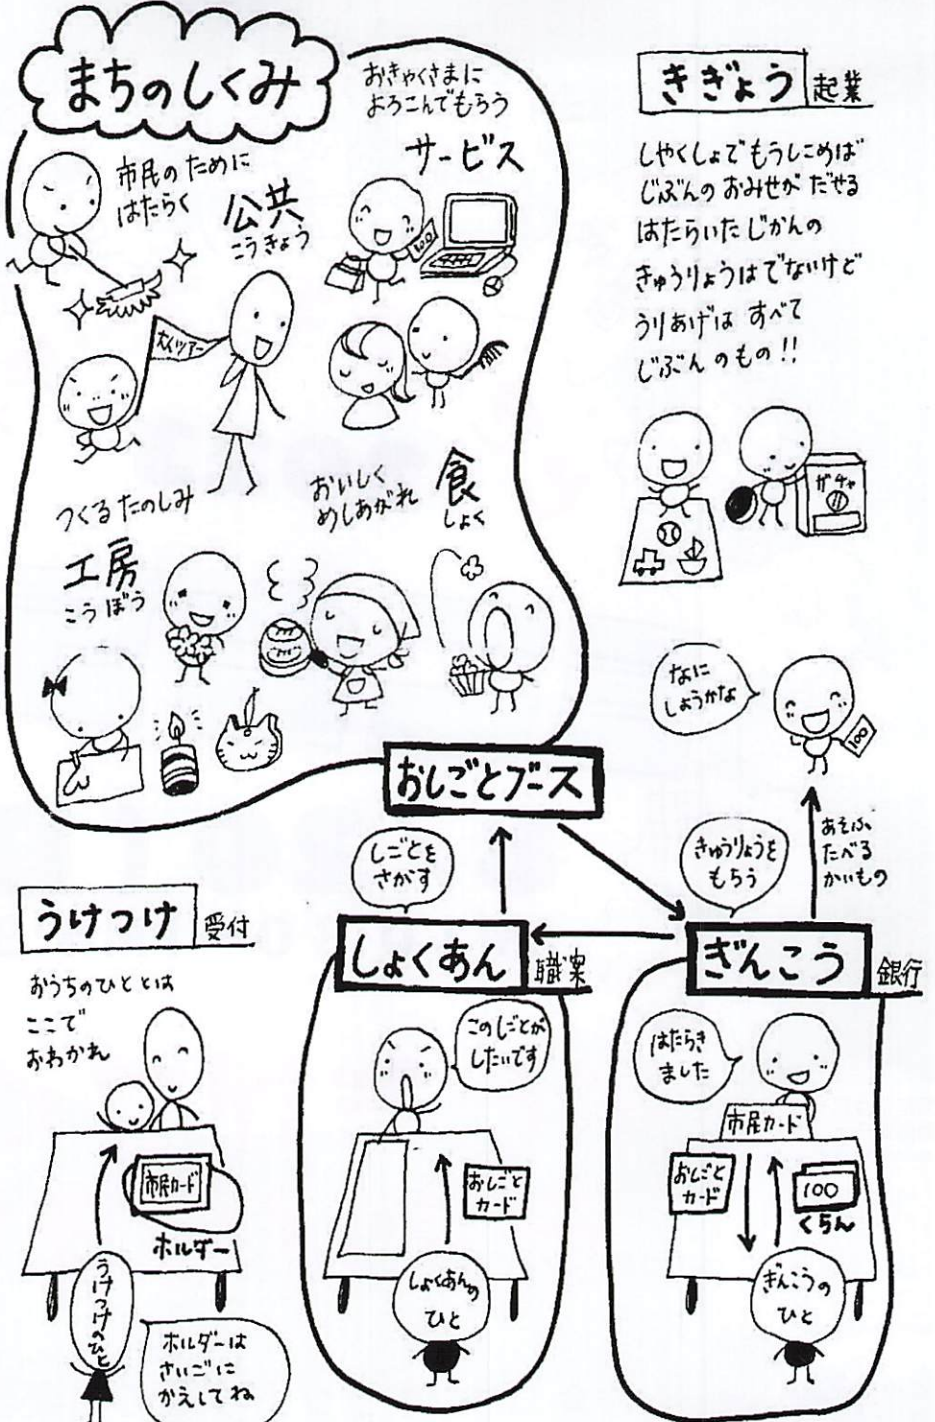 まちのしくみ
おきゃくさまに
よろこんでもらう
サービス
市民のために
はたらく
公共
こうきょう
100
大人ツアー
つくるたのしみ
工房
こうぼう
おいしく
めしあがれ
食
しょく
おしごとブース
きぎょう 起業
しやくしょでもうしこめば
じぶんのおみせがだせる
はたらいたじかんの
きゅうりょうはでないけど
うりあげは すべて
じぶんのもの!!
ガチャ
なに
しようかな
100
あそぶ
たべる
かいもの
しごとを
さがす
きゅうりょうを
もらう
うけつけ 受付
おうちのひととは
ここで
おわかれ
市民カード
ホルダー
うけつけのひと
ホルダーは
さいごに
かえしてね
しょくあん 職案
このしごとが
したいです
おしごと
カード
しょくあんの
ひと
ぎんこう 銀行
はたらき
ました
市民カード
おしごと
カード
100
くらん
ぎんこうの
ひと